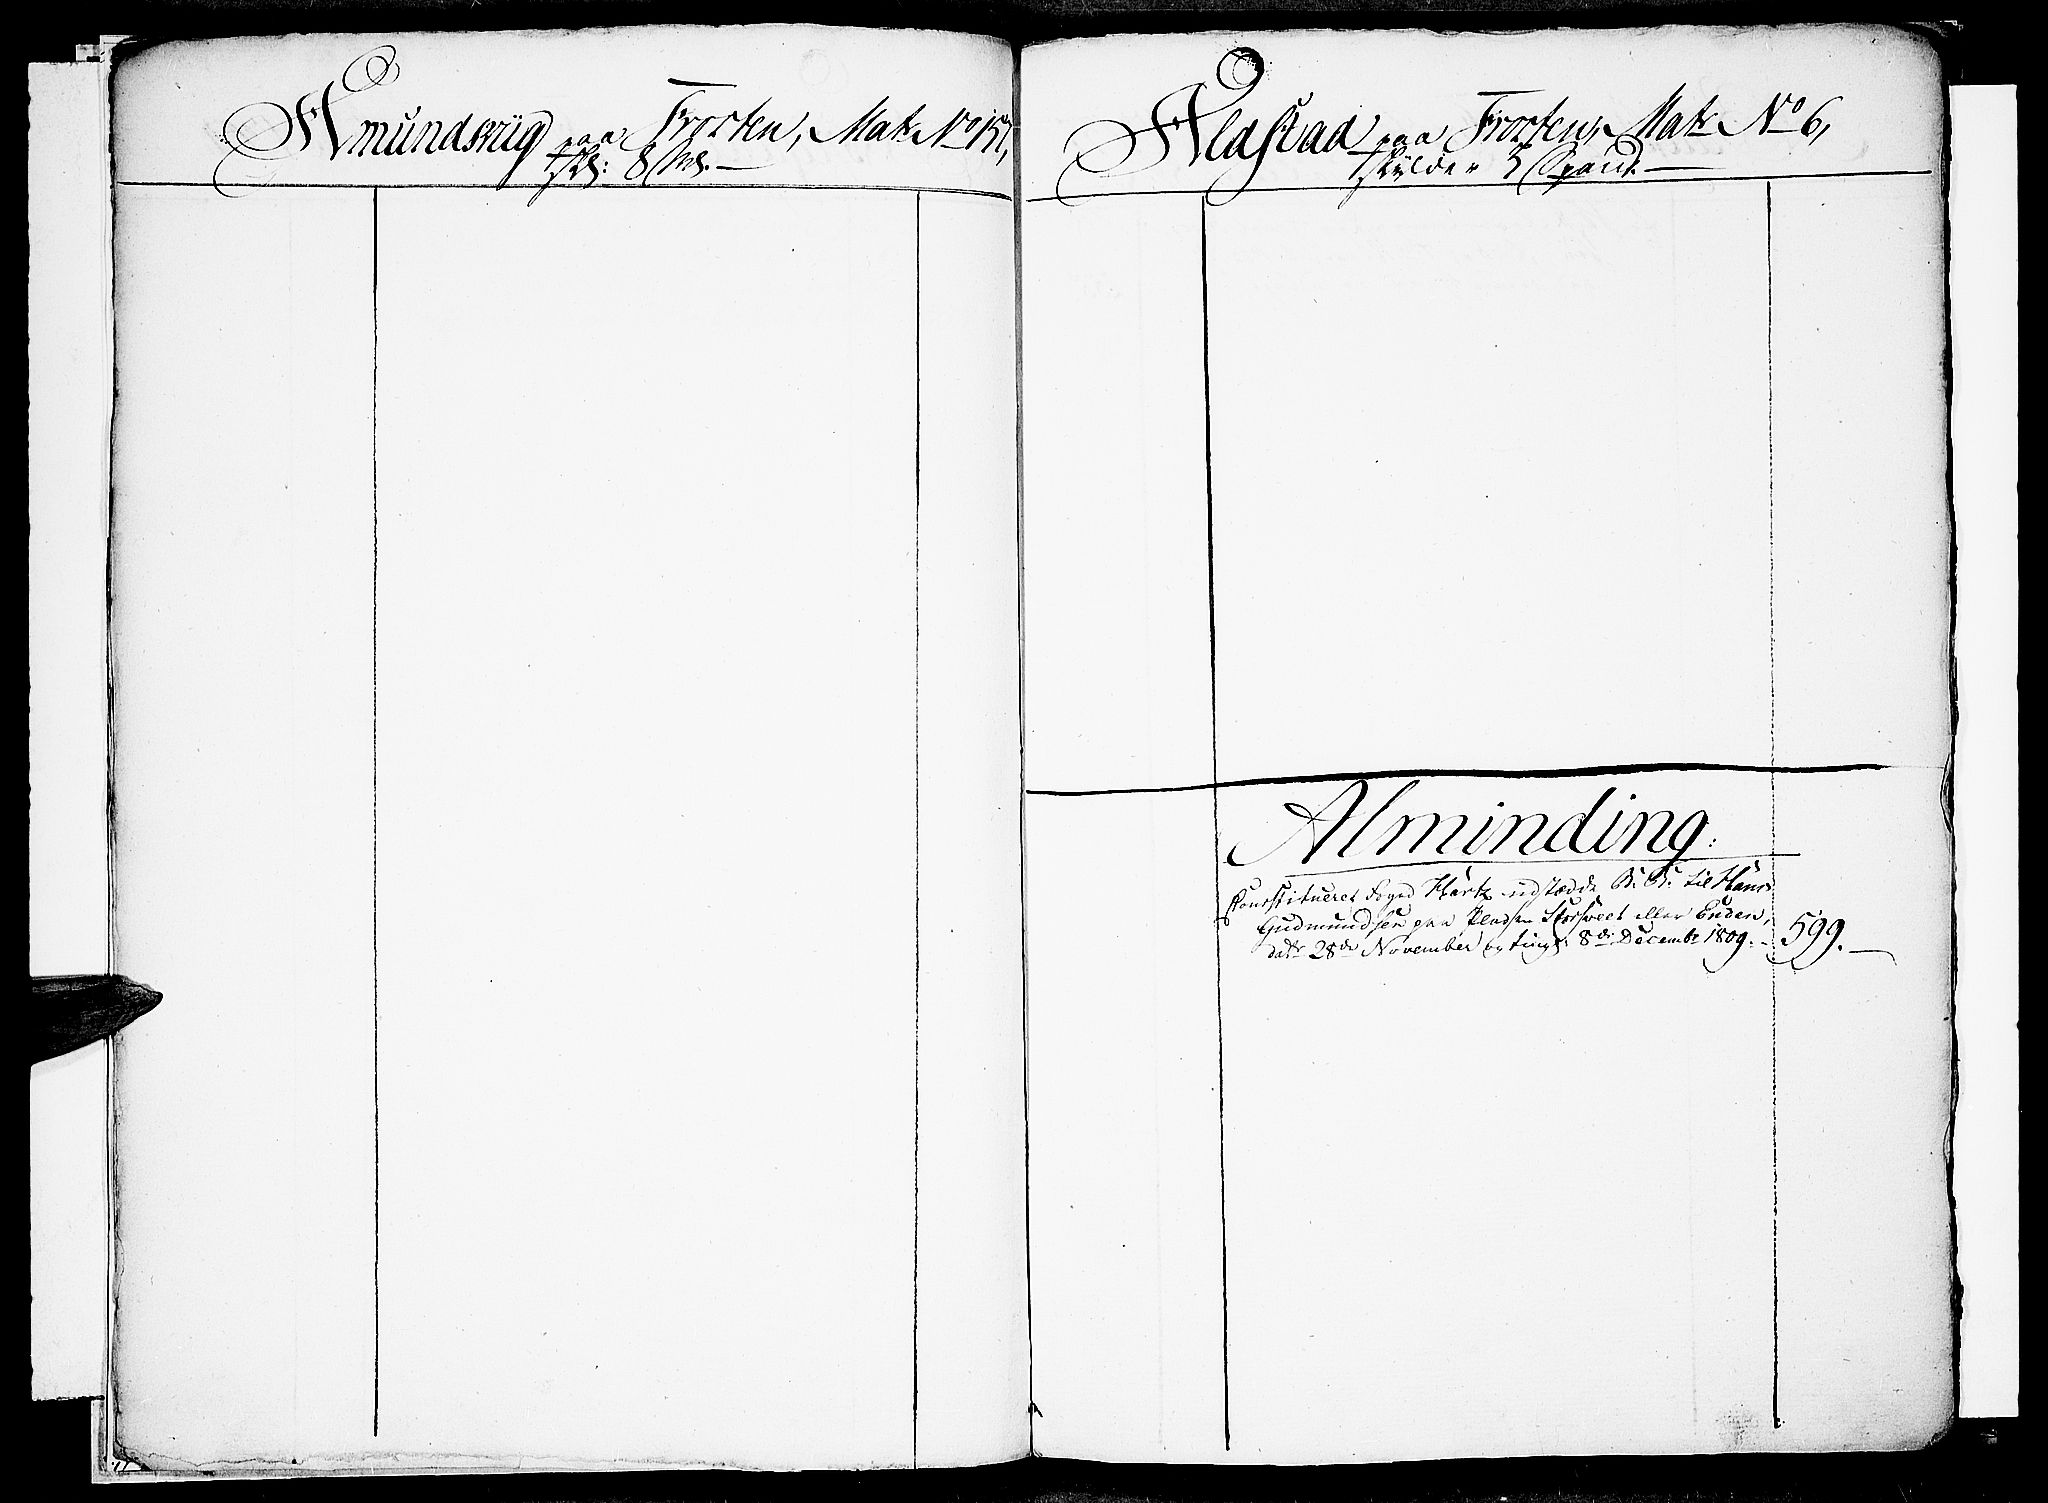 Amundsrüg paa Frosten, Mat: No 157,
skÿ: 8 Mk. —
Aldstad paa Frosten, Mat: No 6,
skÿlder 3 Spand. —
Alminding.
Constitueret Foged Hartz udstædde B: B: til Hans
Gudmundsen paa Pladsen Storsveet eller Enden,
datr 28de November og tingl: 8de Decembr 1809. — 599. —